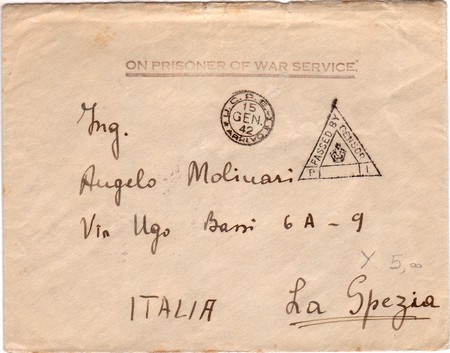 ON PRISONER OF WAR SERVICE.
U.C.P.E.
15
GEN.
42
ARRIVO
PASSED BY CENSOR
P I
Ing.
Angelo Molinari
Via Ugo Bassi 6 A - 9
Y 5,00
ITALIA La Spezia